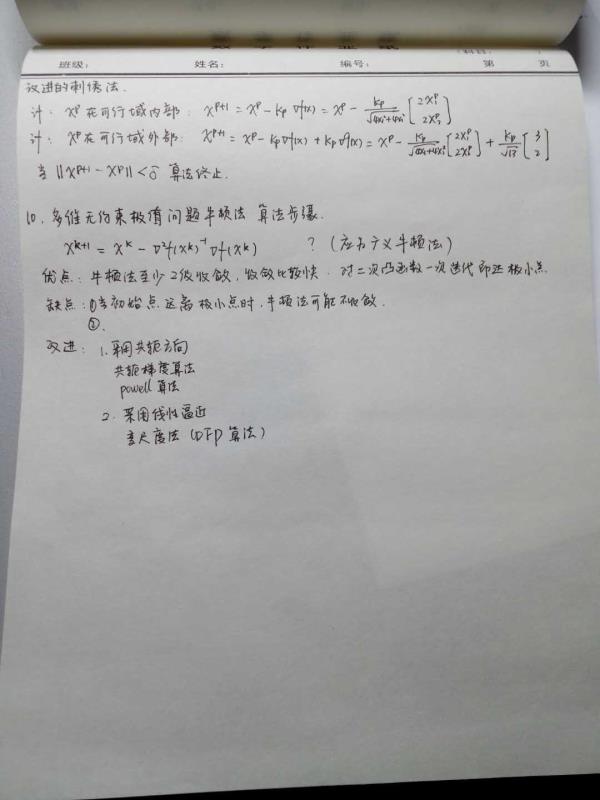 班级： 姓名： 编号： 第 页
改进的刺绣法.
计：X^p 在可行域内部： X^{p+1} = X^p - k_p ∇f(x) = X^p - \frac{k_p}{\sqrt{4x_1^2+4x_2^2}} [2X_1^p 2X_2^p]
计：X^p 在可行域外部： X^{p+1} = X^p - k_p ∇f(x) + k_p ∇g(x) = X^p - \frac{k_p}{\sqrt{4x_1^2+4x_2^2}} [2X_1^p 2X_2^p] + \frac{k_p}{\sqrt{13}} [3 2]
当 ||X^{p+1} - X^p|| < δ 算法终止.
10. 多维无约束极值问题牛顿法 算法步骤.
X^{k+1} = X^k - ∇²f(X^k)^{-1} ∇f(X^k) ? (应为广义牛顿法)
优点：牛顿法至少2级收敛, 收敛比较快. 对二次凸函数一次迭代即达极小点.
缺点：①当初始点远离极小点时, 牛顿法可能不收敛.
②.
改进： 1. 采用共轭方向
共轭梯度算法
powell 算法
2. 采用线性逼近
变尺度法 (DFP 算法)